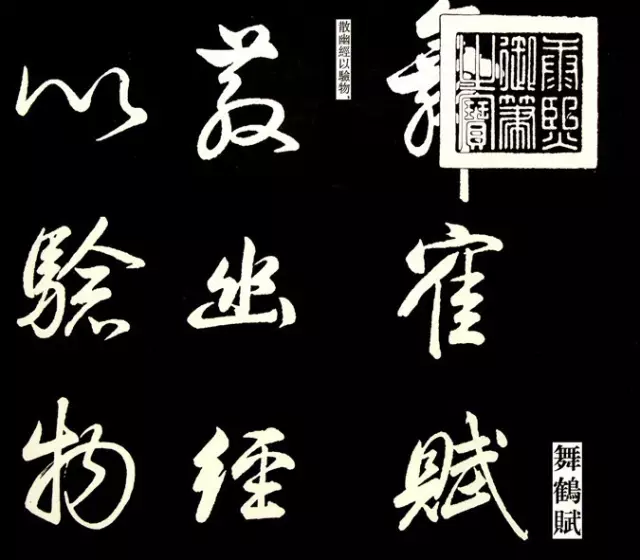 康熙御筆之寶
舞寉賦
舞鶴賦
散幽經以驗物，
散幽經
以驗物